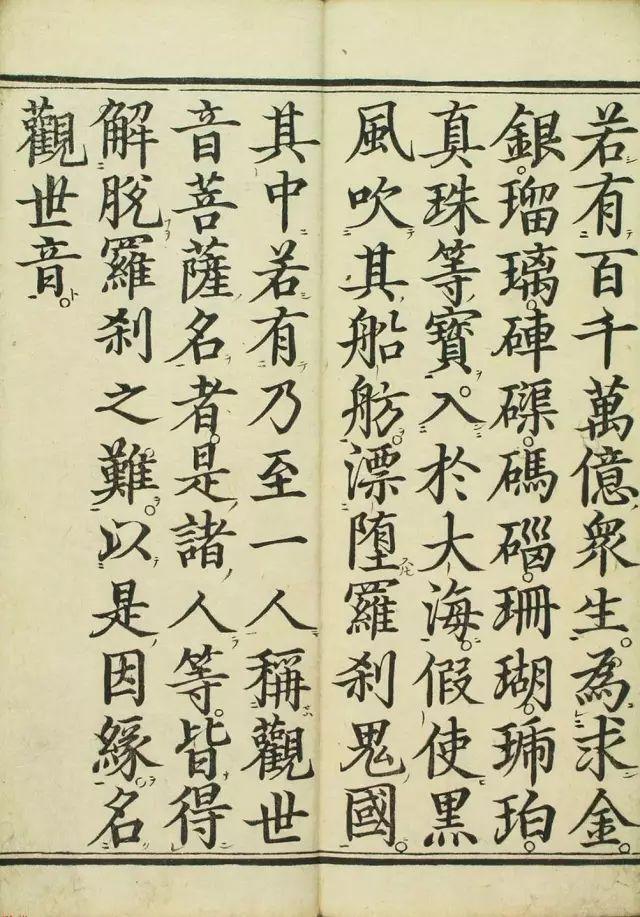 若有百千萬億衆生。為求金。
銀。瑠璃。硨磲。碼碯。珊瑚。琥珀。
真珠等寶。入於大海。假使黑
風吹其船舫。漂墮羅刹鬼國。
其中若有乃至一人稱觀世
音菩薩名者。是諸人等。皆得
解脫羅刹之難。以是因緣。名
觀世音。